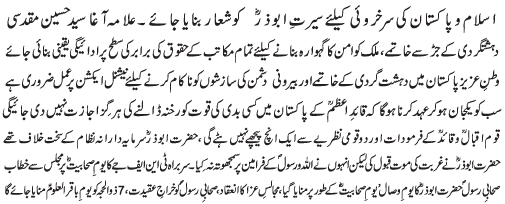 اسلام و پاکستان کی سرخروئی کیلئے سیرتِ ابوذرؓ کو شعار بنایا جائے۔ علامہ آغا سید حسین مقدسی
دہشتگردی کے جڑ سے خاتمے، ملک کو امن کا گہوارہ بنانے کیلئے تمام مکاتب کے حقوق کی برابر کی سطح پر ادائیگی یقینی بنائی جائے
وطنِ عزیز پاکستان میں دہشت گردی کے خاتمے اور بیرونی دشمن کی سازشوں کو ناکام کرنے کیلئے نیشنل ایکشن پر عمل ضروری ہے
سب کو یکجان ہو کر عہد کرنا ہوگا کہ قائدِ اعظمؒ کے پاکستان میں کسی بدی کی قوت کو رخنہ ڈالنے کی ہرگز اجازت نہیں دی جائیگی
قوم اقبالؒ و قائدؒ کے فرمودات اور دو قومی نظریے سے ایک انچ پیچھے نہیں ہٹے گی، حضرت ابوذرؓ سرمایہ دارانہ نظام کے سخت خلاف تھے
حضرت ابوذرؓ نے غربت کی موت قبول کی لیکن انہوں نے اللہ و رسولؐ کے فرامین پر سمجھوتہ نہ کیا۔ سربراہ ٹی این ایف جے کا یوم صحابیتؓ پر مجلس سے خطاب
صحابی رسولؐ حضرت ابوذرؓ کا یوم وصال 'یوم صحابیتؓ' کے طور پر منایا گیا، مجالسِ عزا کا انعقاد، صحابی رسولؐ کو خراجِ عقیدت، 7 ذوالحجہ کو یوم باقر العلومؑ منایا جائے گا